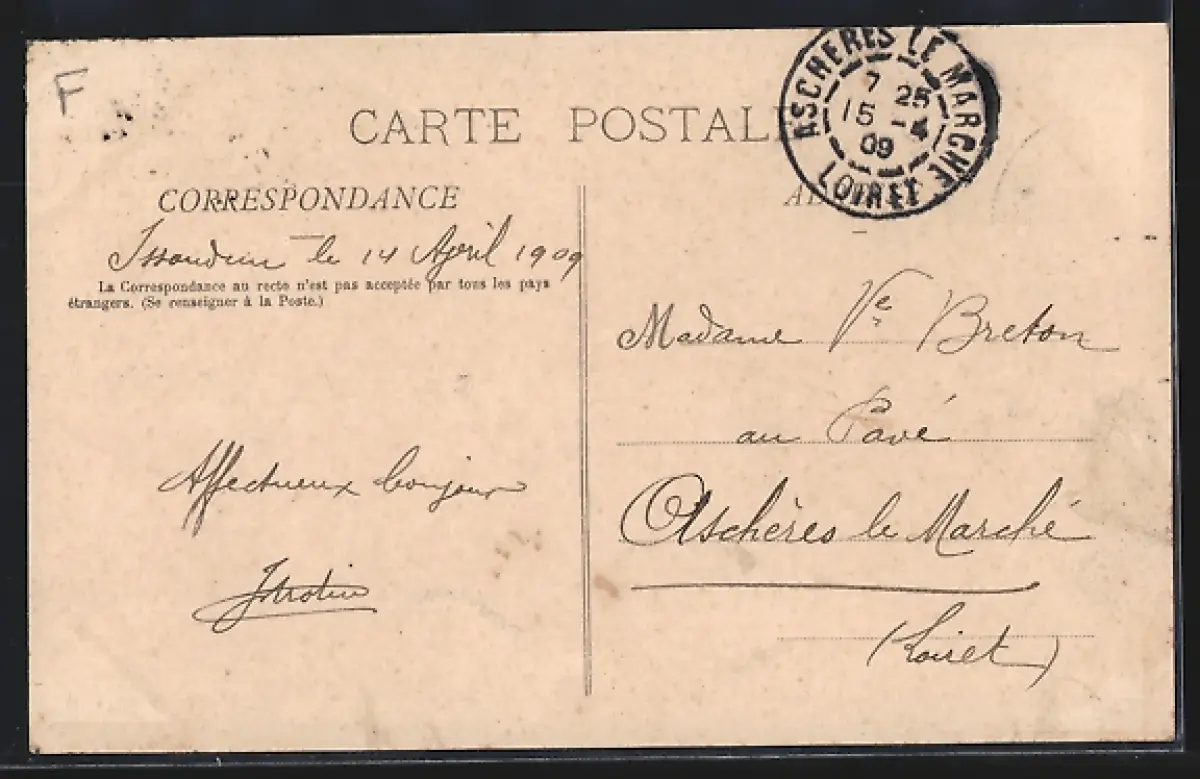 F
CARTE POSTAL
ASCHERES LE MARCHE
7 25
15 - 4
09
LOIRET
CORRESPONDANCE
Issoudun le 14 April 1909
La Correspondance au recto n'est pas acceptée par tous les pays
étrangers. (Se renseigner à la Poste.)
Affectueux bonjour
Madame Ve Breton
au Pavé
Aschères le Marché
(Loiret)